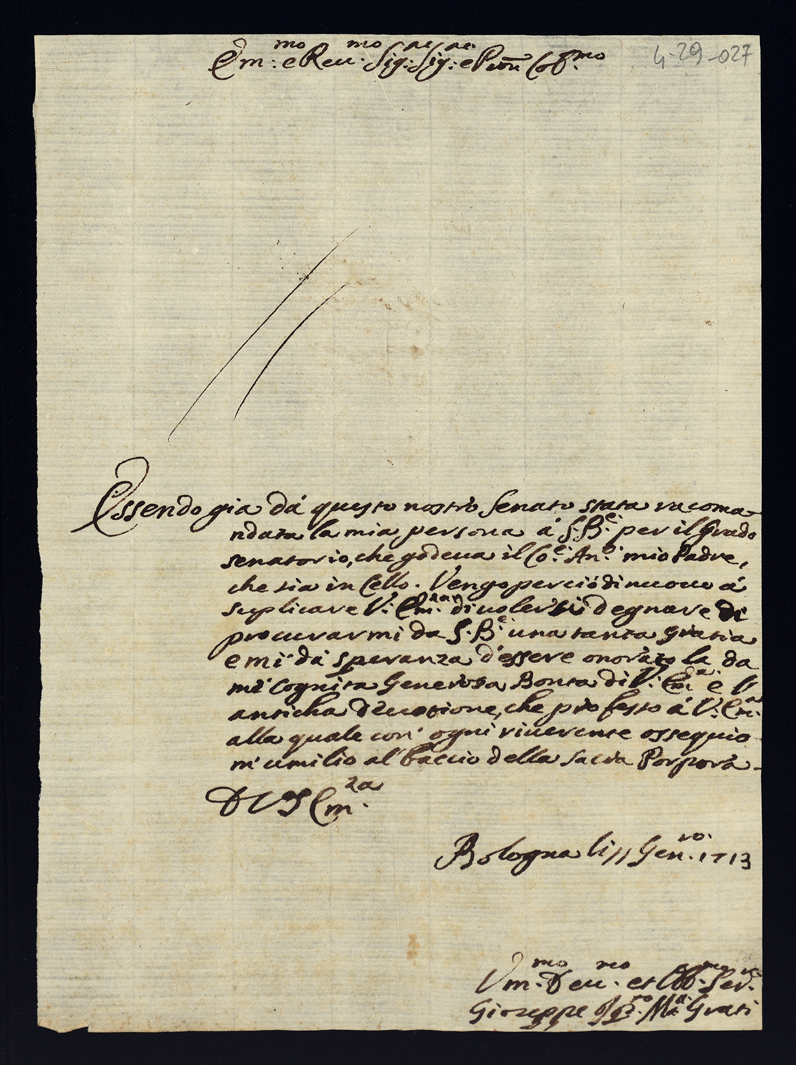 Em.mo e Reu.mo Sig.re Sig.re e Pron Col.mo
4-29-027
Essendo gia dà questo nostro Senato stata racoma-
ndata la mia persona à S. B.e per il Grado
senatorio, che godeua il Co.e An.o mio Padre,
che sia in Cello. Vengo perciò di nuouo à
suplicare V. Em.za di uolersi degnare di
procurarmi da S. B.e una tanta Gratia
e mi dà speranza d'essere onorato la da
me cognita Generosa Bontà di V. Em.a e l'
anticha diuotione, che professo à V. Em.a
alla quale con ogni riuerente ossequio
m'umilio al baccio della sacra Porpora-
D V Em.za
Bologna li 11 Gen.ro 1713
Vm.mo Deu.mo et Obb.mo Ser.re
Giuseppe M.a Grati